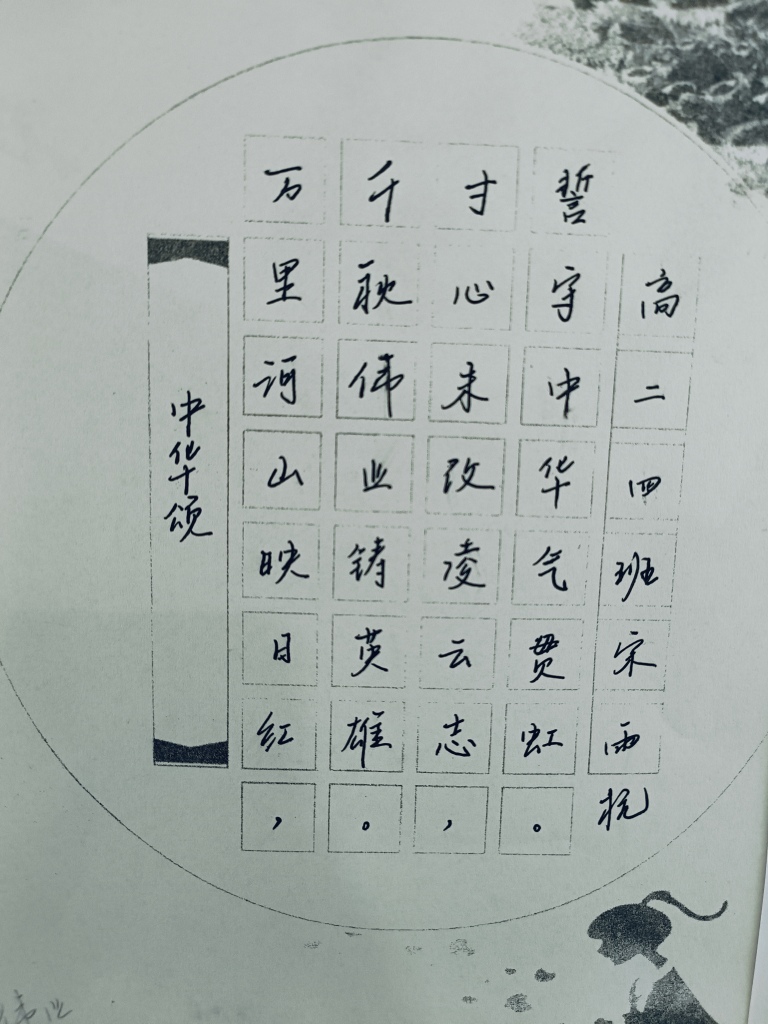 中华颂
万里河山映日红，
千秋伟业铸英雄。
寸心未改凌云志，
誓守中华气贯虹。
高二四班宋雨杭
伟业